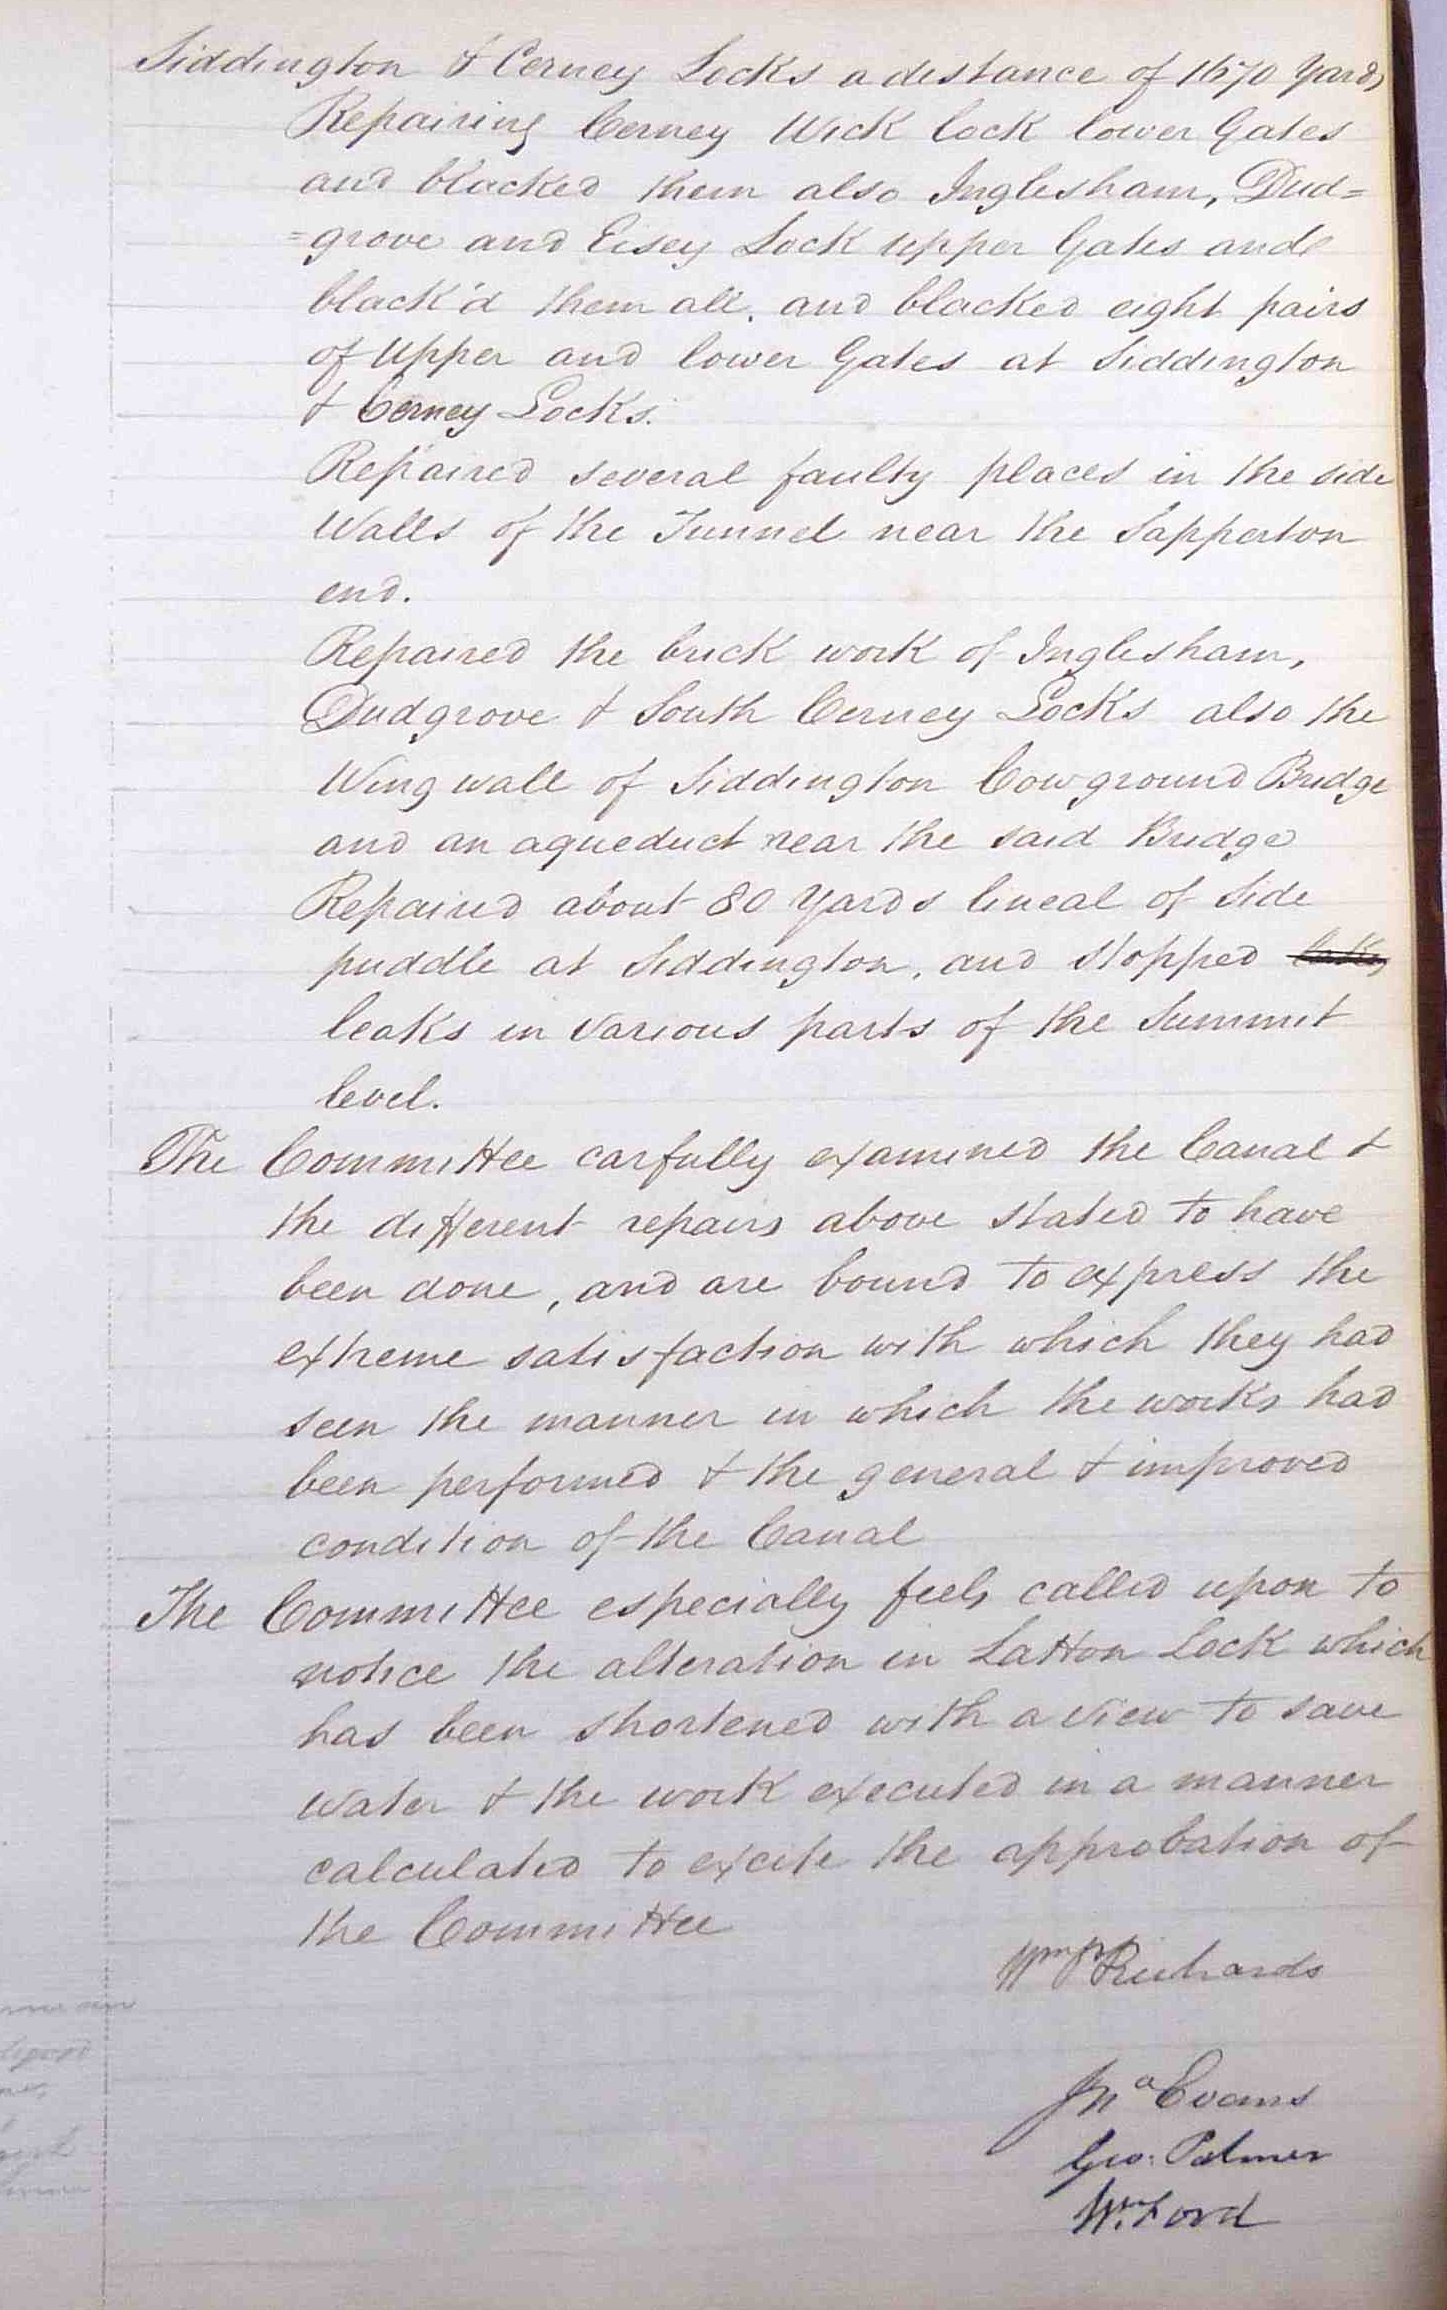 Siddington & Cerney Locks a distance of 1670 Yards
Repairing Cerney Wick lock lower Gates
and blacked them also Inglesham, Dud=
=grove and Eisey Lock upper Gates and
black'd them all. and blacked eight pairs
of Upper and lower Gates at Siddington
& Cerney Locks.
Repaired several faulty places in the side
Walls of the Tunnel near the Sapperton
end.
Repaired the brick work of Inglesham,
Dudgrove & South Cerney Locks also the
Wing wall of Siddington Cowground Bridge
and an aqueduct near the said Bridge
Repaired about 80 Yards lineal of Side
puddle at Siddington, and stopped
leaks in various parts of the Summit
level.
The Committee carfully examined the Canal &
the different repairs above stated to have
been done, and are bound to express the
extreme satisfaction with which they had
seen the manner in which the works had
been performed & the general & improved
condition of the Canal
The Committee especially feels called upon to
notice the alteration in Latton Lock which
has been shortened with a view to save
water & the work executed in a manner
calculated to excite the approbation of
the Committee
Wm P Richards
Jno Evans
Geo: Palmer
Wm. Ford